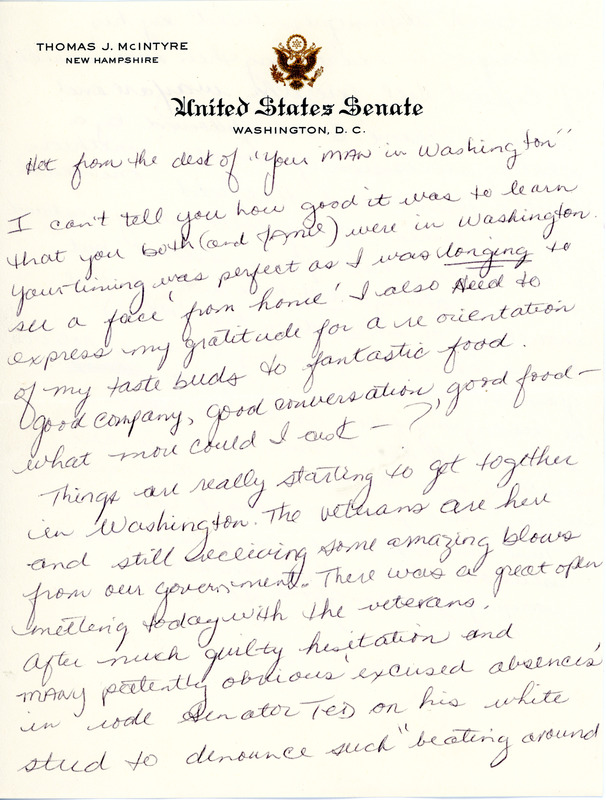 THOMAS J. McINTYRE
NEW HAMPSHIRE
United States Senate
WASHINGTON, D. C.
Hot from the desk of "Your MAN in Washington"
I can't tell you how good it was to learn
that you both (and Jamie) were in Washington.
Your timing was perfect as I was longing to
see a face 'from home'. I also need to
express my gratitude for a re orientation
of my taste buds to fantastic food.
Good company, good conversation, good food –
what more could I ask – ?
Things are really starting to get together
in Washington. The veterans are here
and still receiving some amazing blows
from our government. There was a great open
meeting today with the veterans.
After much guilty hesitation and
many patently obvious 'excused absences'
in rode Senator TED on his white
stud to denounce such "beating around